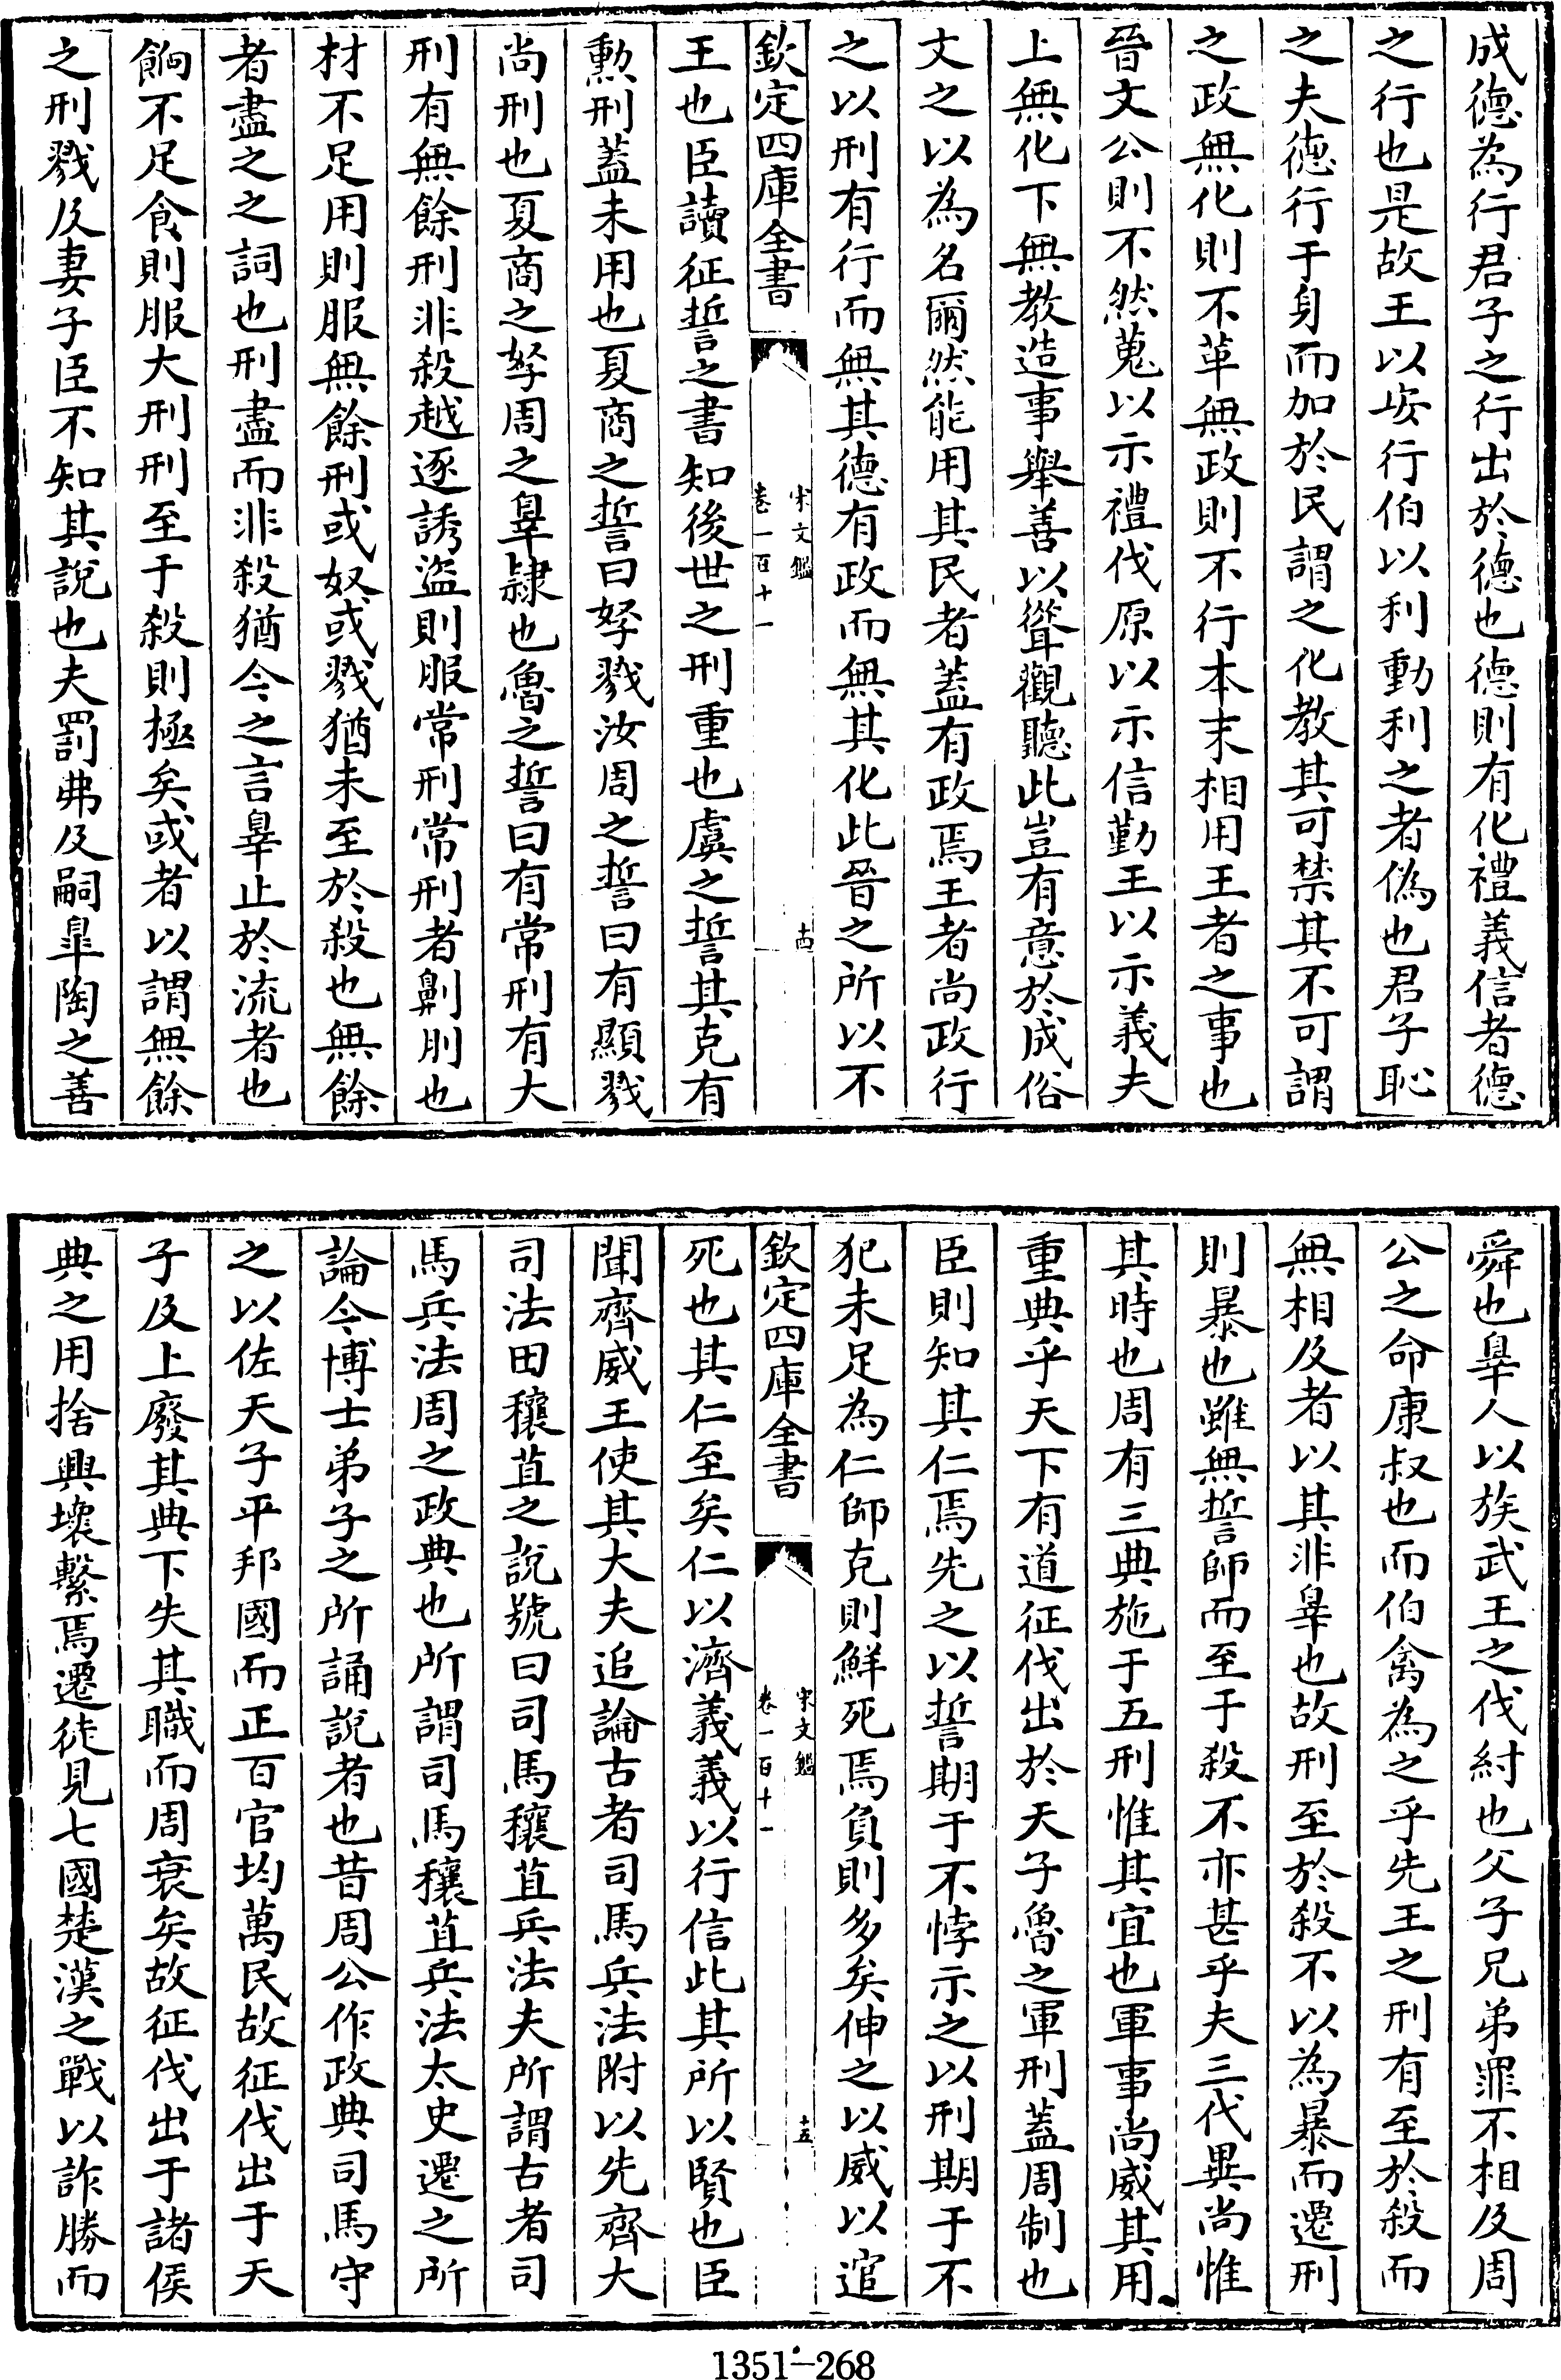 成德為行君子之行出於德也德則有化禮義信者德
之行也是故王以安行伯以利動利之者偽也君子恥
之夫德行于身而加於民謂之化教其可禁其不可謂
之政無化則不革無政則不行本末相用王者之事也
晉文公則不然蒐以示禮伐原以示信勤王以示義夫
上無化下無教造事舉善以聳觀聽此豈有意於成俗
文之以為名爾然能用其民者蓋有政焉王者尚政行
之以刑有行而無其德有政而無其化此晉之所以不
欽定四庫全書
宋文鑑
卷一百十一
十四
王也臣讀征誓之書知後世之刑重也虞之誓其克有
勲刑蓋未用也夏商之誓曰孥戮汝周之誓曰有顯戮
尚刑也夏商之孥周之辠隷也魯之誓曰有常刑有大
刑有無餘刑非殺越逐誘盜則服常刑常刑者劓刖也
材不足用則服無餘刑或奴或戮猶未至於殺也無餘
者盡之之詞也刑盡而非殺猶今之言辠止於流者也
餉不足食則服大刑刑至于殺則極矣或者以謂無餘
之刑戮及妻子臣不知其說也夫罰弗及嗣臯陶之善
舜也辠人以族武王之伐紂也父子兄弟罪不相及周
公之命康叔也而伯禽為之乎先王之刑有至於殺而
無相及者以其非辠也故刑至於殺不以為暴而遷刑
則暴也雖無誓師而至于殺不亦甚乎夫三代異尚惟
其時也周有三典施于五刑惟其宜也軍事尚威其用
重典乎天下有道征伐出於天子魯之軍刑蓋周制也
臣則知其仁焉先之以誓期于不悖示之以刑期于不
犯未足為仁師克則鮮死焉負則多矣伸之以威以逭
欽定四庫全書
宋文鑑
卷一百十一
十五
死也其仁至矣仁以濟義義以行信此其所以賢也臣
聞齊威王使其大夫追論古者司馬兵法附以先齊大
司法田穰苴之說號曰司馬穰苴兵法夫所謂古者司
馬兵法周之政典也所謂司馬穰苴兵法太史遷之所
論今博士弟子之所誦說者也昔周公作政典司馬守
之以佐天子平邦國而正百官均萬民故征伐出于天
子及上廢其典下失其職而周衰矣故征伐出于諸侯
典之用捨興壞繫焉遷徒見七國楚漢之戰以詐勝而
1351-268